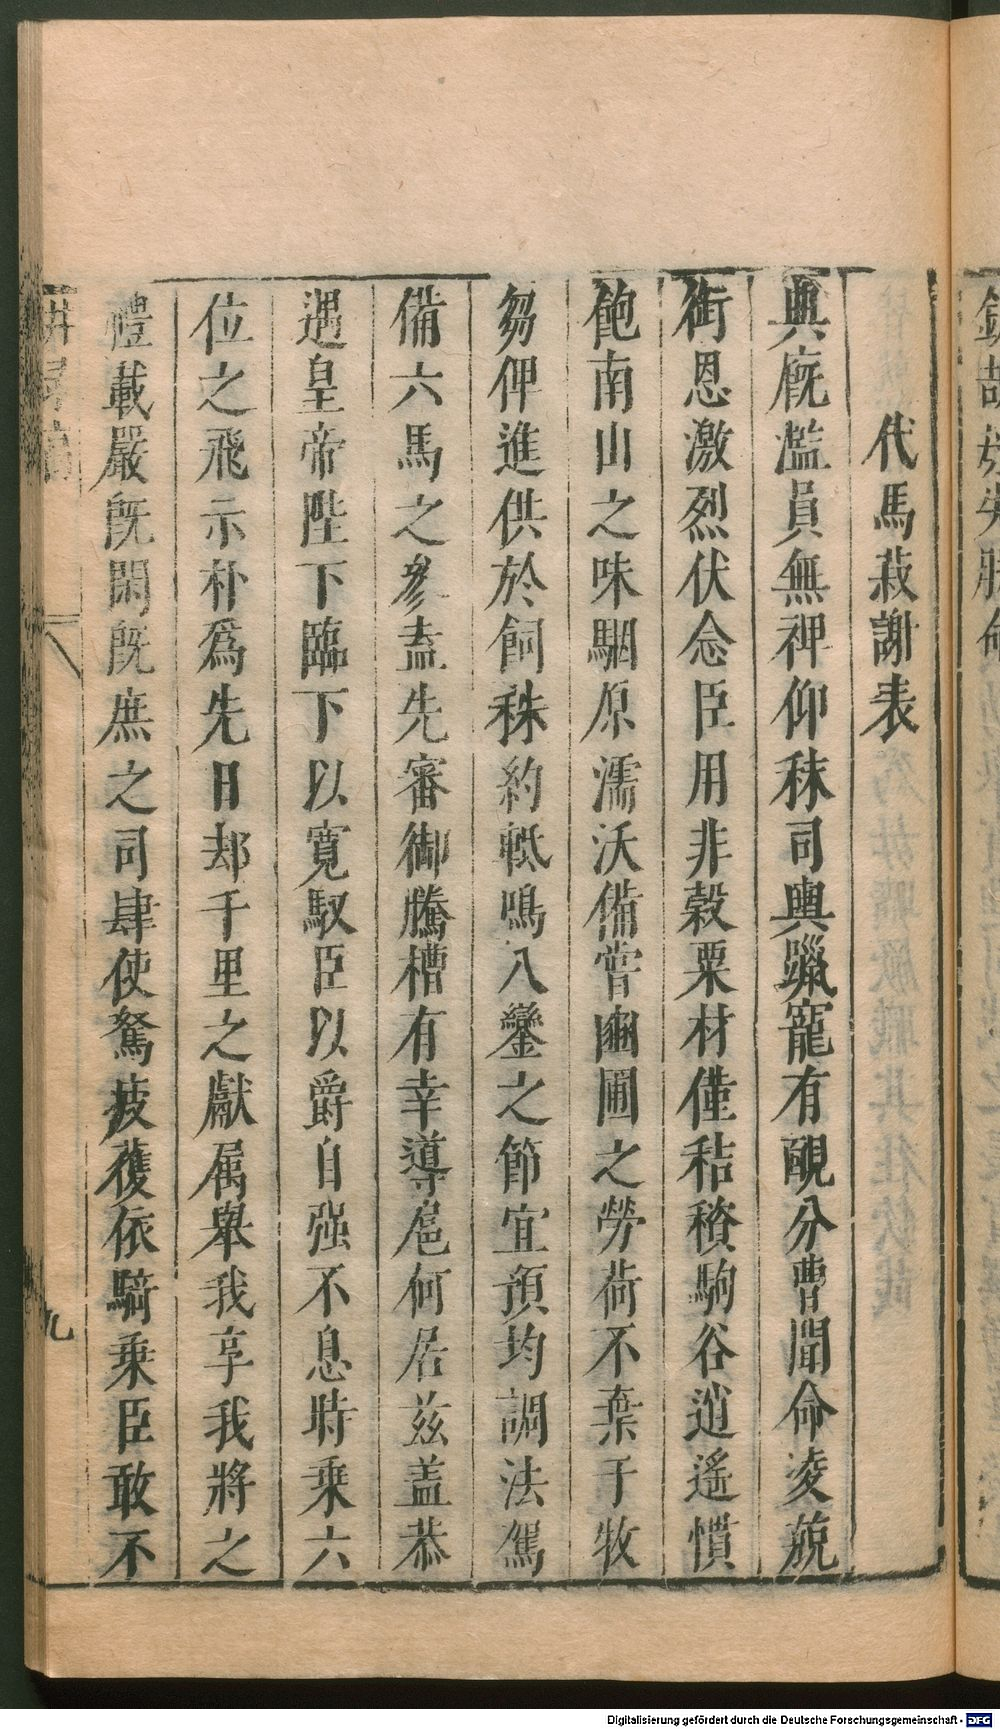 代馬菽謝表
典廐濫員無裨仰秣司輿躐寵有靦分曹聞命凌兢
銜恩激烈伏念臣用非穀粟材僅秸穧駒谷逍遙慣
飽南山之味駰原濡沃備嘗豳圃之勞荷不棄于牧
芻俾進供於飼秣約軝鳴八鑾之節宜預均調法駕
備六馬之參盍先審御騰槽有幸導扈何居茲盖恭
遇皇帝陛下臨下以寬馭臣以爵自强不息時乗六
位之飛示朴爲先日却千里之獻属舉我享我將之
禮載嚴旣閑旣庶之司肆使駑疲獲依騎乗臣敢不
九
Digitalisierung gefördert durch die Deutsche Forschungsgemeinschaft - DFG